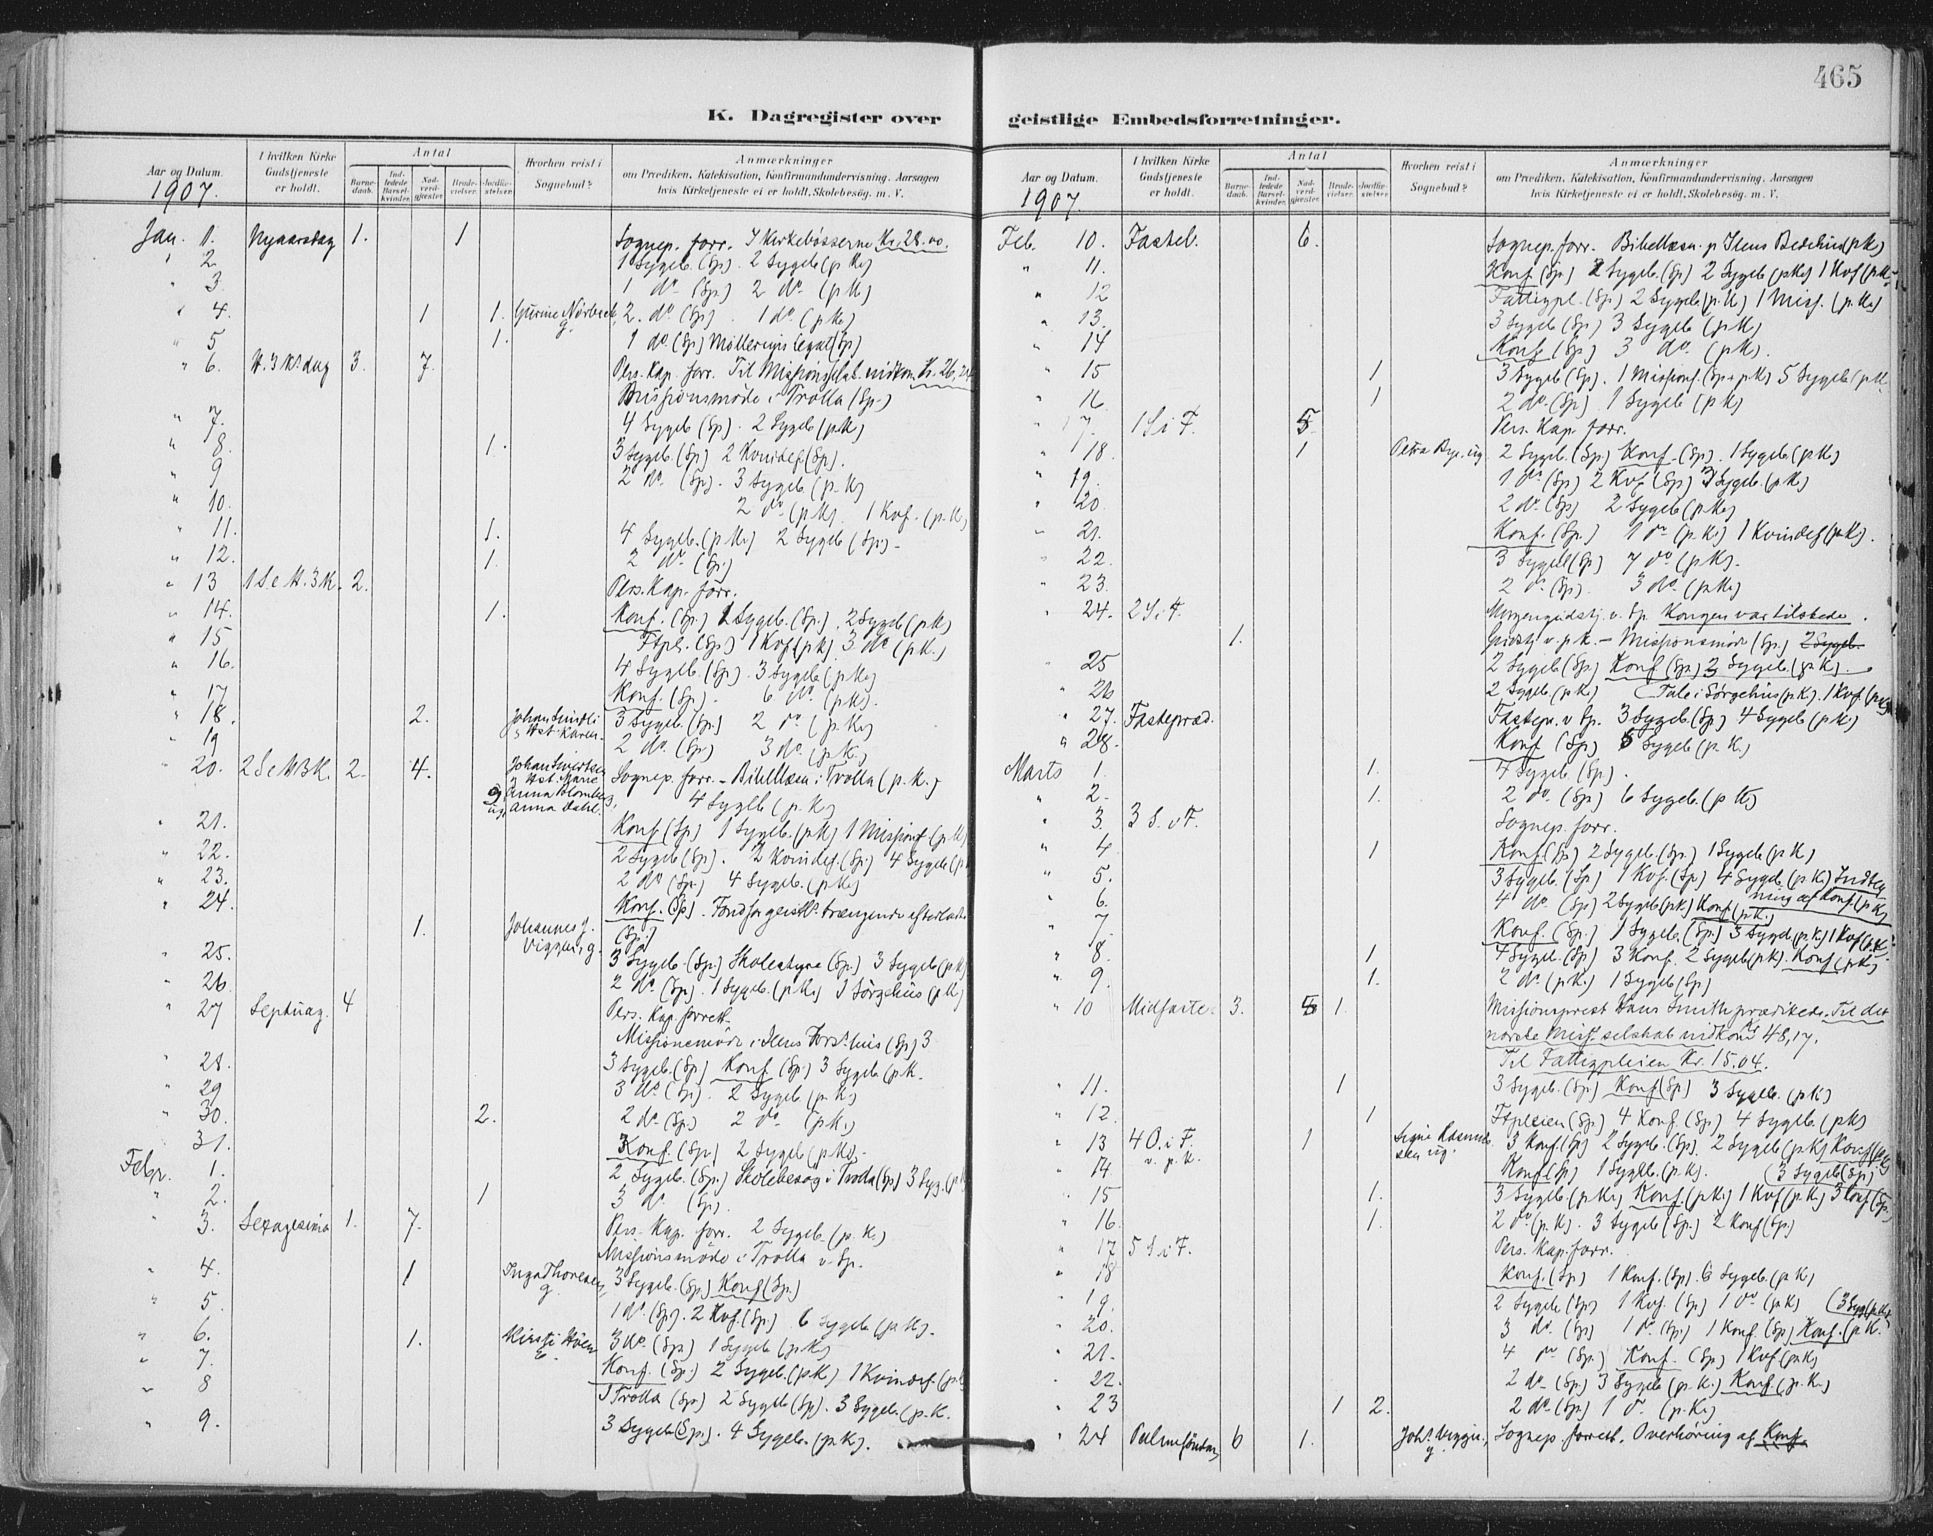 465
K. Dagregister over geistlige Embedsforretninger.
Aar og Datum.
I hvilken Kirke Gudstjeneste er holdt.
Antal
Barnedaab.
Indledede Barselkvinder.
Nadverdgjæster.
Brudevielser.
Jordfæstelser.
Hvorhen reist i Sognebud?
Anmærkninger
om Prædiken, Katekisation, Konfirmandundervisning, Aarsagen
hvis Kirketjeneste ei er holdt, Skolebesøg m. V.
1907.
Jan. 1. Nyaarsdag 1. 1 Sognep. forr. I Kirkebösserne Kr. 28.00.
" 2 1 Sygeb. (Sp). 2 Sygeb (p K)
" 3 1 do (Sp.) 2 do (p K)
" 4. 1 1. 2. do (Sp) . 1 do (p K)
" 5 1. 1 do (Sp) Möllerups legat (Sp)
" 6. H. 3 K. dag 3. 7. Pers. Kap. forr. Til Missionsselsk. indkom Kr. 26,24
Missionsmöde i Trolla (Sp.)
" 7. 4 Sygeb (Sp) . 2 Sygeb (p K)
" 8. 1. 3 Sygeb. (Sp) 2 Kvindef. (Sp).
" 9 2 do (Sp). 3 Sygeb (p. K)
" 10. 2 do (p K) 1 Kvf. (p. K)
" 11. 1. 4 Sygeb. (p K) 2 Sygeb (Sp.)
" 12. 1. 2 do (Sp.)
" 13 1 S e H. 3 K. 2. Pers. Kap. forr.
" 14. 1. Konf. (Sp.) Sygeb. (Sp.) . 2 Sygeb (p K)
" 15 Ftpl. (Sp.) 1 Kvf (p K) 3 do (p K.)
" 16. 4 Sygeb. (Sp) . 3 Sygeb (p K)
" 17 Konf. (Sp). 6 do (p K).
" 18. 2. 3 Sygeb. (Sp) 2 do (p K)
" 19 2 do (Sp) 3 do (p K.)
" 20. 2 S e H 3 K. 2. 4. Sognep. forr. – Bibellæsn. i Trolla (p. K.)
Anna Blomberg,
Anna Dahl. 4 Sygeb (p. K)
" 21. Konf. (Sp) 1 Sygeb. (p K) 1 Missionsf. (p K)
" 22. 2 Sygeb (Sp) . 2 Kvindef. (Sp) 4 Sygeb (p
" 23. 2 do (Sp) 4 Sygeb. (p K)
" 24. Konf. (Sp) . Fond for geistl. trængende efterladte
1. Johannes J. Viggen, g. (Sp.)
" 25. 3 Sygeb. (Sp.) Skolestyre (Sp) 3 Sygeb (p K)
" 26 2 do (Sp). 1 Sygeb. (p K) I Sörgehus (p K)
" 27 Septuag. 4 Pers. Kap. forrett.
Missionsmöde i Ilens Fors. hus (Sp) 3
" 28. 3 Sygeb. (Sp) Konf (Sp) 3 Sygeb (p K.
" 29 3 do (Sp). 2 Sygeb (p. K)
" 30. 2. 2 do (Sp) 2 do (p K.)
31. Konf. (Sp) 2 Sygeb (p K).
Febr. 1. 2 Sygeb. (Sp.) Skolebesög i Trolla (Sp) 3 Syg. (p K
" 2. 1 3 do (Sp).
" 3. Sexagesima 1. 7. Pers. Kap. forr. 2 Sygeb. (p. K.)
Missionsmöde i Trolla v. Sp.
" 4. 1 Inga Thoresen, g. 3 Sygeb. (Sp.) Konf (Sp.)
" 5. 1 do (Sp). 2 Kvf. (Sp) 6 Sygeb (p K).
" 6. 1. 3 do (Sp) 1 Sygeb (p K)
" 7. Konf. (Sp) 2 Sygeb. (p K) 1 Kvindef. (p K
" 8 I Trolla (Sp) 2 Sygeb (Sp). 3 Sygeb. (p. K.
" 9. 3 Sygeb (Sp.) . 4 Sygeb. (p. K).
Aar og Datum.
I hvilken Kirke Gudstjeneste er holdt.
Antal
Barnedaab.
Indledede Barselkvinder.
Nadverdgjæster.
Brudevielser.
Jordfæstelser.
Hvorhen reist i Sognebud?
Anmærkninger
om Prædiken, Katekisation, Konfirmandundervisning, Aarsagen
hvis Kirketjeneste ei er holdt, Skolebesøg m. V.
1907.
Feb. 10. Fastel. 6. Sognep. forr. Bibellæsn. p Ilens Bedehus (p K)
" 11. Konf. (Sp) 2 Sygeb. (Sp) 2 Sygeb (p K) 1 Kvf (p K
" 12 Fattigpl. (Sp) 2 Sygeb (p. K) 1 Miss. (p. K)
" 13. 3 Sygeb (Sp) 3 Sygeb (p K)
" 14 Konf (Sp) 3 do (p K).
" 15 1 3 Sygeb (Sp). 1 Missionsf. (Sp + p K) 5 Sygeb (p K
" 16 1 2 do (Sp) 1 Sygeb (p K)
" 17. 1 S i F. 5. Pers. Kap. forr.
" 18. 1 2 Sygeb. (Sp.) Konf. (Sp). 1 Sygeb (p K)
" 19. 1 do (Sp) 2 Kvf (Sp) 3 Sygeb. (p K)
" 20 2 do (Sp) 2 Sygeb (p K)
" 21. Konf. (Sp.) 1 do (p. K.) 1 Kvindef (p K).
" 22. 3 Sygeb (Sp) 7 do (p K).
" 23. 2 do (Sp). 3 do. (p K)
" 24. 2 S. i F. Morgengudstj. v. Sp. Kongen var tilstede.
1. Gudstj v. p K. – Missionsmöde (Sp.) 2 Sygeb.
" 25 2 Sygeb (Sp) Konf (Sp) 2 Sygeb. (p K).
" 26 2 Sygeb (p K) (Tale i Sörgehus (p K). 1 Kvf. (p K)
" 27. Fastepræd. Fastepr. v Sp. 3 Sygeb. (Sp) 4 Sygeb (p K)
" 28. Konf (Sp) 5 Sygeb (p. K.)
Marts 1. 1. 4 Sygeb (Sp).
" 2. 1. 2 do. (Sp) 6 Sygeb. (p K)
" 3. 3 S. i F. Sognep. forr.
" 4. 1 Konf (Sp) 2 Sygeb. (Sp.) 1 Sygeb (p K)
" 5. 3 Sygeb. (Sp) 1 Kvf. (Sp) 4 Sygeb. (p K.) Indteg
ning af Konf. (p K)
" 6. 4 do (Sp) 2 Sygeb (p K.) Konf. (p K.)
" 7 Konf. (Sp.) 1 Sygeb. (Sp.) 3 Sygeb (p. K.) 1 Kvf (p. K.
" 8. 1 4 Sygeb. (Sp) 3 Konf. 2 Sygeb (p K). Konf (p K)
" 9. 1. 2 do (p K.) 1 Sygeb (Sp)
" 10 Midfaste. 3. 5 1. Missionsprest Hans Smith prædikede. Til det
norske Miss. selskab indkom Kr 48,17.
Til Fattigpleien Kr. 15.04.
" 11. 1 3 Sygeb. (Sp) Konf (Sp) 3 Sygeb. (p K.)
" 12. 1 Ftpleien (Sp) 4 Konf. (Sp) 4 Sygeb. (p K)
" 13 4 O. i F. v. p. K. 1 3 Konf. (Sp) 2 Sygeb. (Sp). 2 Sygeb (p K) Konf (p K)
" 14 Konf (Sp) 1 Sygeb. (p K). (3 Sygeb (Sp)
" 15 1. 3 Sygeb (p K) Konf. (p K.) 1 Kvf (p K) 3 Konf (Sp.)
" 16. 1. 2 do (p. K) . 3 Sygeb (Sp.) 2 Konf (Sp)
" 17 5 S i F. Pers. Kap. forr.
" 18 Konf. (Sp) 1 Konf. (Sp). 6 Sygeb. (p K)
" 19. 2 Sygeb (Sp) 1 Kvf. (Sp) 1 do (p K) (3 Syg (p K)
" 20. 3 do. (Sp) 1 do. (Sp) 1 Konf. (Sp) Konf. (p K.
" 21. 4 do (Sp.) Konf. (Sp) 1 Kvf (p K)
" 22. 2 do (Sp) 3 Sygeb (p. K.) Konf. (p. K.)
" 23 1 2. 2 do (Sp) 1 d. (p. K.)
" 24 Palmesöndag, 6 1. Joh. Viggen, g. Sognep. forrett. Overhöring af Konf.